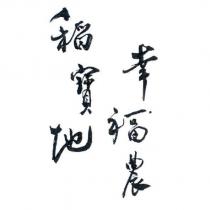 幸福農
稻寶地